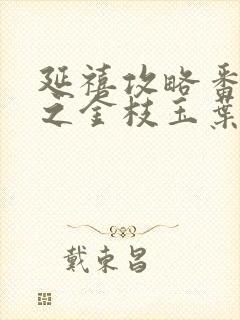 延禧攻略番
之金枝玉葉
戴東昌